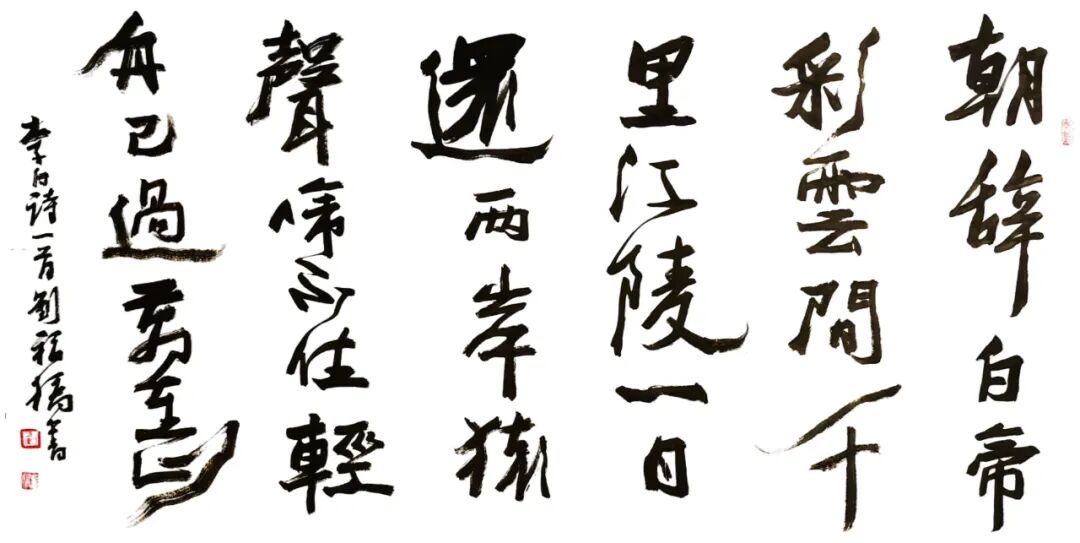 朝辞白帝
彩雲間千
里江陵一日
還两岸猿
聲啼不住輕
舟已過萬重山
李白詩一首劉書